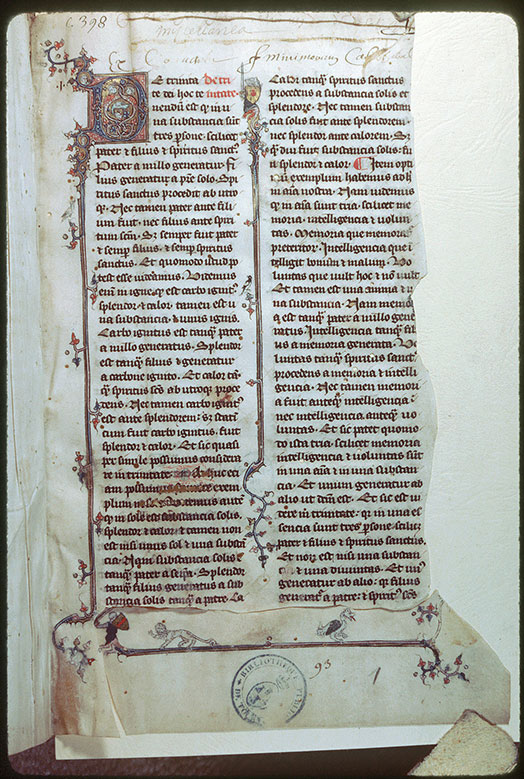 C 398
miscellanea
De trinita De tri
te tri hoc te nitate
nendū est ꝙ in u
na substancia sūt
tres ꝑsone. scilicet
pater & filius & spiritus sanct᷒.
Pater a nullo generatur. fi
lius generatur a pr̄e solo. Spi
ritus sanctus procedit ab utro
ꝙ. Nec tamen pater ante fili
um fuit. nec filius ante spiri
tum scm̄. Sꝫ semper fuit pater
& semꝑ filius. & semꝑ spiritus
sanctus. Et quomodo istud p
test esse uideamus. Videmus
eni in igne ꝙ est carbo ignit᷒.
splendor & calor. tamen est u
na substancia. & unus ignis.
Carbo ignitus est tanꝙ pater
a nullo generatus. Splendor
est tanꝙ filius & generatur
a carbone ignito. Et calor tā
ꝙ spiritus scs̄ ab utroꝙ proce
dens. Nec tamen carbo ignit᷒
est ante splendorem. sꝫ stati
cum fuit carbo ignitus. fuit
splendor & calor. Et sic quasi
per simile possumus considera
re in trinitate.
exem
plum in sole. Videmus
ꝙ in sole est substancia solis.
splendor & calor. & tamen non
est nisi unus sol & una substā
cia. Nam substancia solis
tanꝙ pater a seipa. Splendor
tanꝙ filius generatus a sub
stancia solis tanꝙ a patre. Ca
Calor tanꝙ spiritus sanctus
procedens a substancia solis et
splendore. Nec tamen substan
cia solis fuit ante splendorem.
nec splendor ante calorem. Sꝫ
ꝙ diu fuit substancia solis. fu
it splendor & calor. Item opti
mū exemplum habemus
in aīa nostra. Nam uidemus
ꝙ in aīa sunt tria. scilicet me
moria. intelligencia & uolun
tas. Memoria que memora
preteritor. Intelligencia que ī
telligit bonum & malum. Vo
luntas que uult hoc & nō uult
Et tamen est una anima & u
na substancia. Nam memo
ꝙ est tanꝙ pater a nullo gene
ratus. Intelligencia tanꝙ fili
us a memoria generata. Vo
luntas tanꝙ spiritus sanct
procedens a memoria & intelli
gencia. Nec tamen memori
a fuit anteꝙ intelligencia
nec intelligencia anteꝙ uo
luntas. Et sic patet quomo
do ista tria. scilicet memoria
intelligencia & uoluntas sūt
in una aīa & in una substan
cia. Et unum generatur ab
alio ut dem est. Et sic est ui
dere in trinitate. ꝙ in una es
sencia sunt tres ꝑsone. scilicꝫ
pater & filius & spiritus sanctus.
Et non est nisi una substan
cia & una diuinitas. Et un᷒
generatur ab alio. ꝙ filius
generat᷒ a patre. & spirit᷒ scs̄
93 1